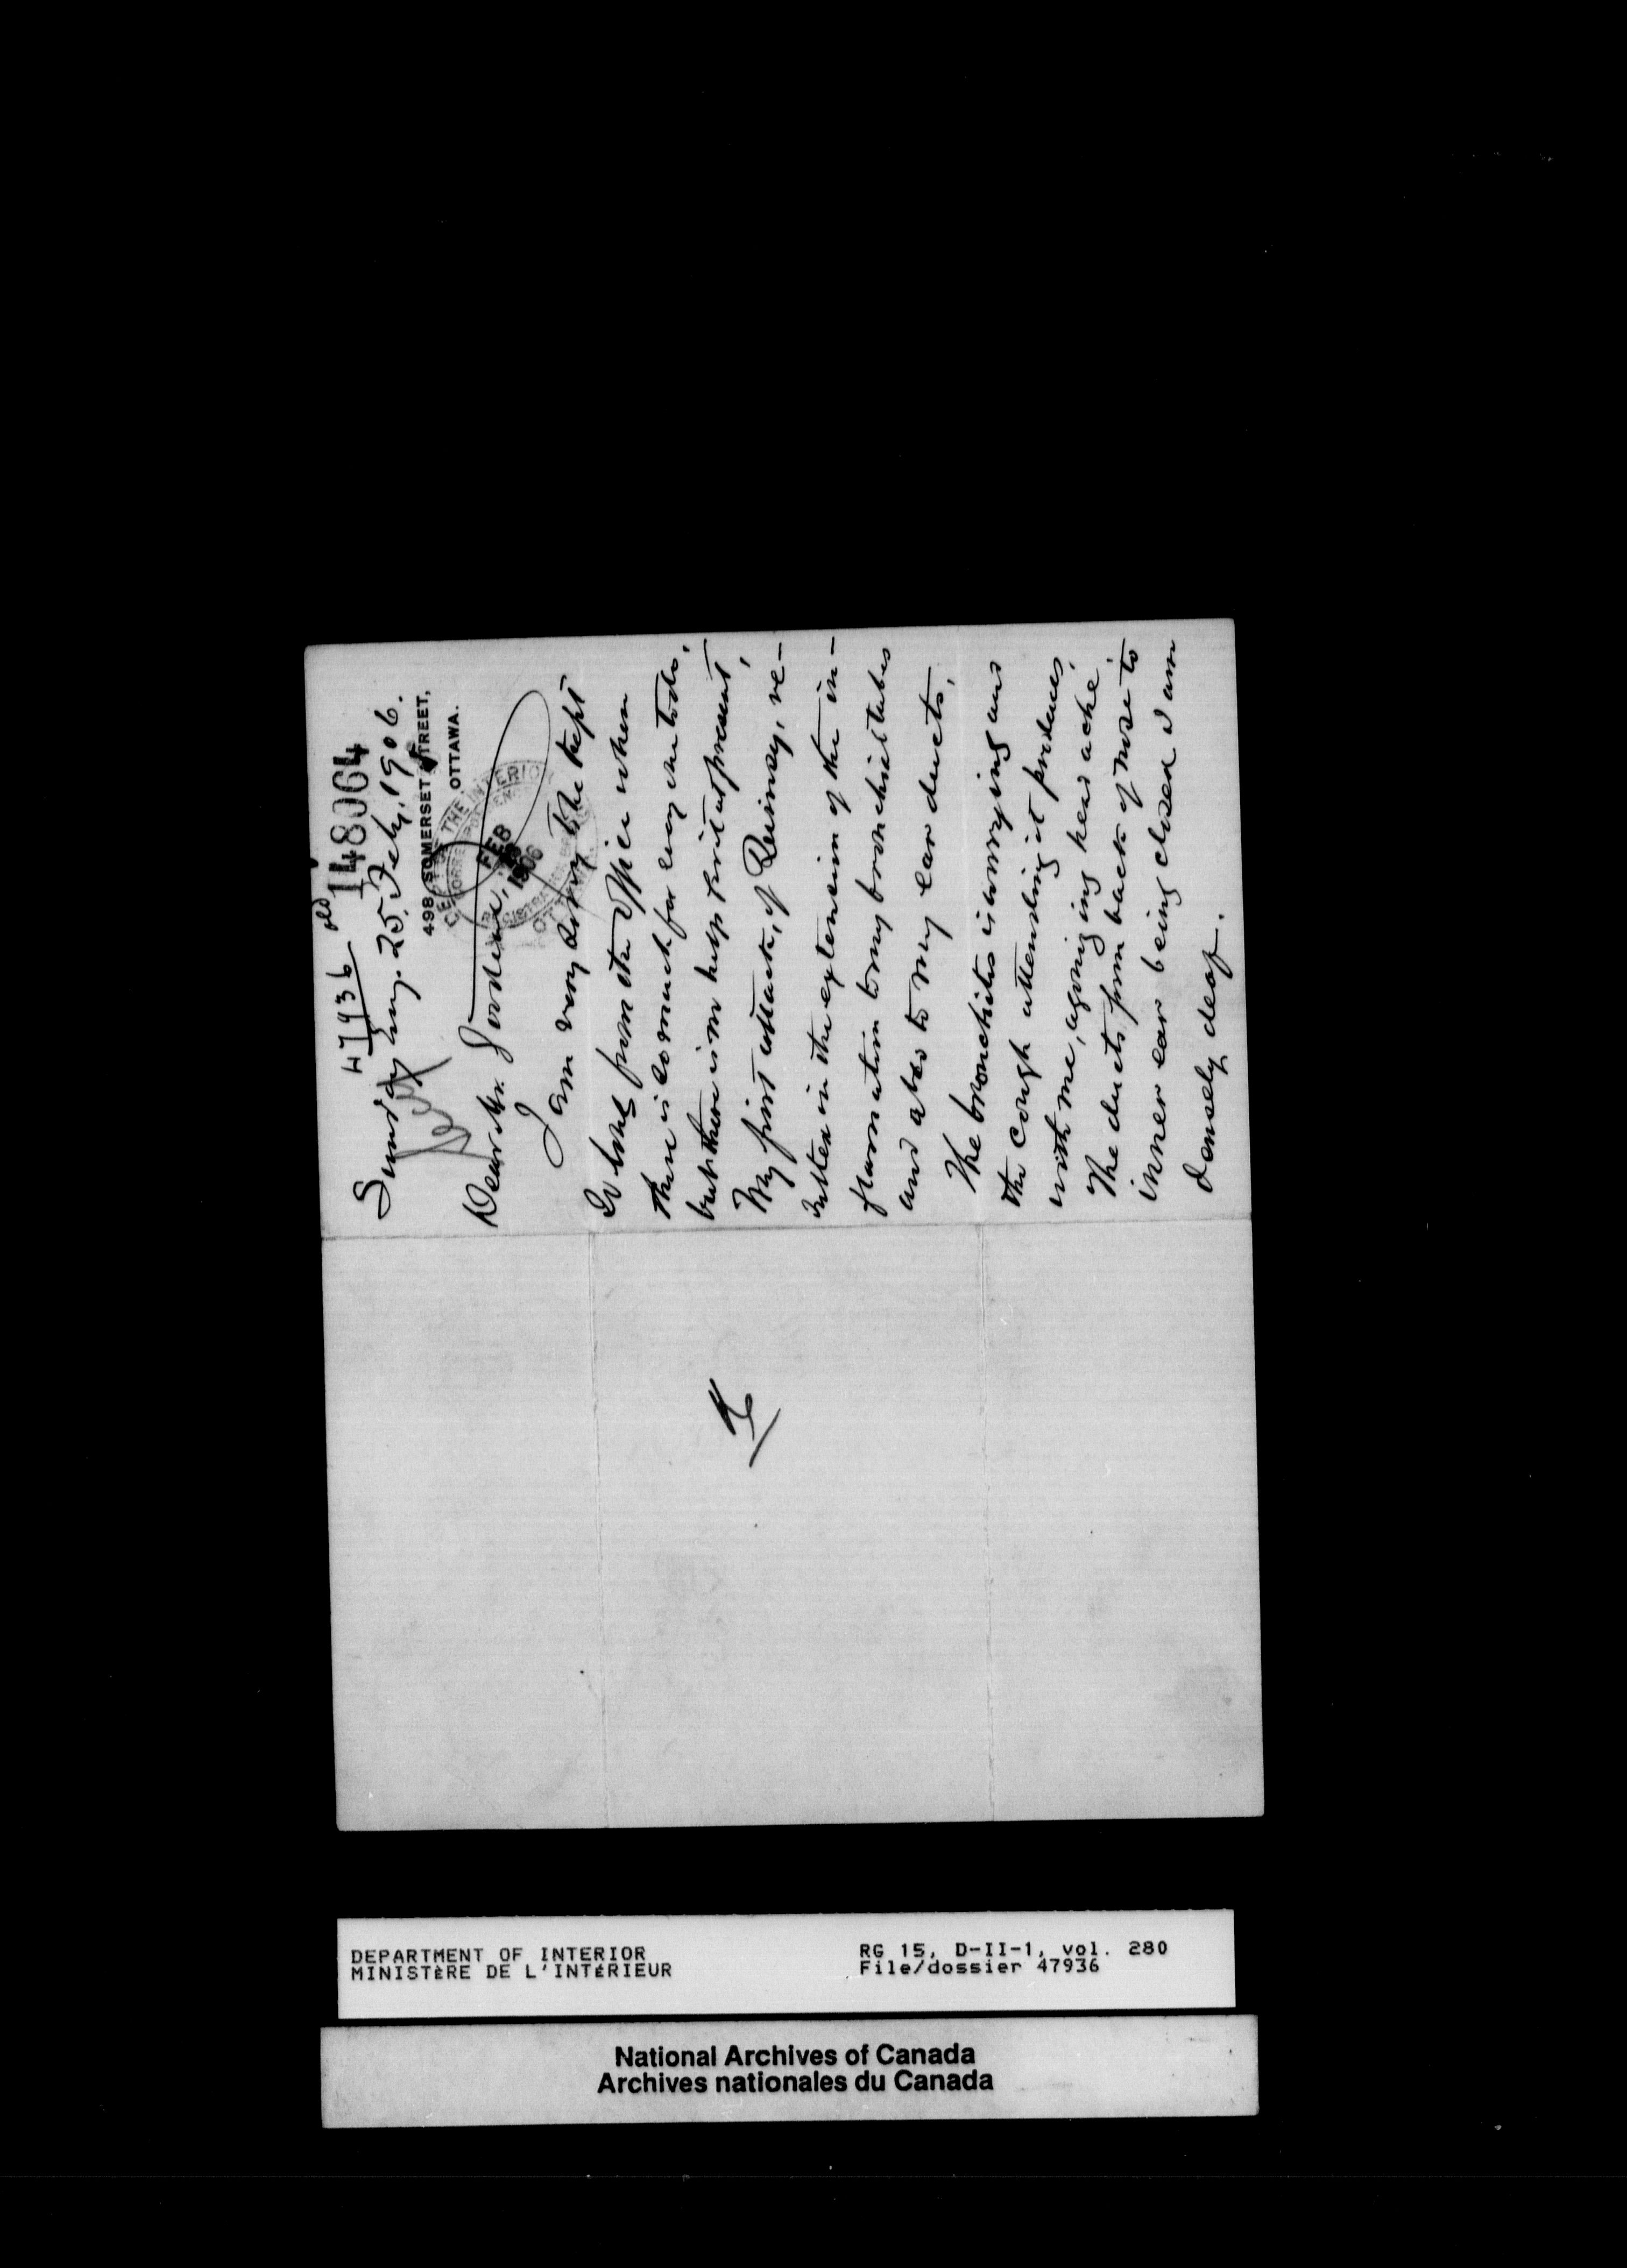 47936 old
148064
Sunday Evng. 25. Feby, 1906.
498 SOMERSET STREET,
OTTAWA.
DEPT. OF THE INTERIOR
FEB
1906
Dear Mr.
I am very sorry to be kept
so long from the Office when
there is so much for every one to do,
but there is no help for it at present,
My first attack, of Quinsey, re-
sulted in the extension of the in-
flammation to my bronchial tubes
and also to my ear ducts,
The bronchitis is worrying and
the cough attending it produces,
with me, agonizing head ache.
The ducts from back of nose to
inner ear being closed I am
densely deaf.
DEPARTMENT OF INTERIOR
MINISTÈRE DE L'INTÉRIEUR
RG 15, D-II-1, vol. 280
File/dossier 47936
National Archives of Canada
Archives nationales du Canada